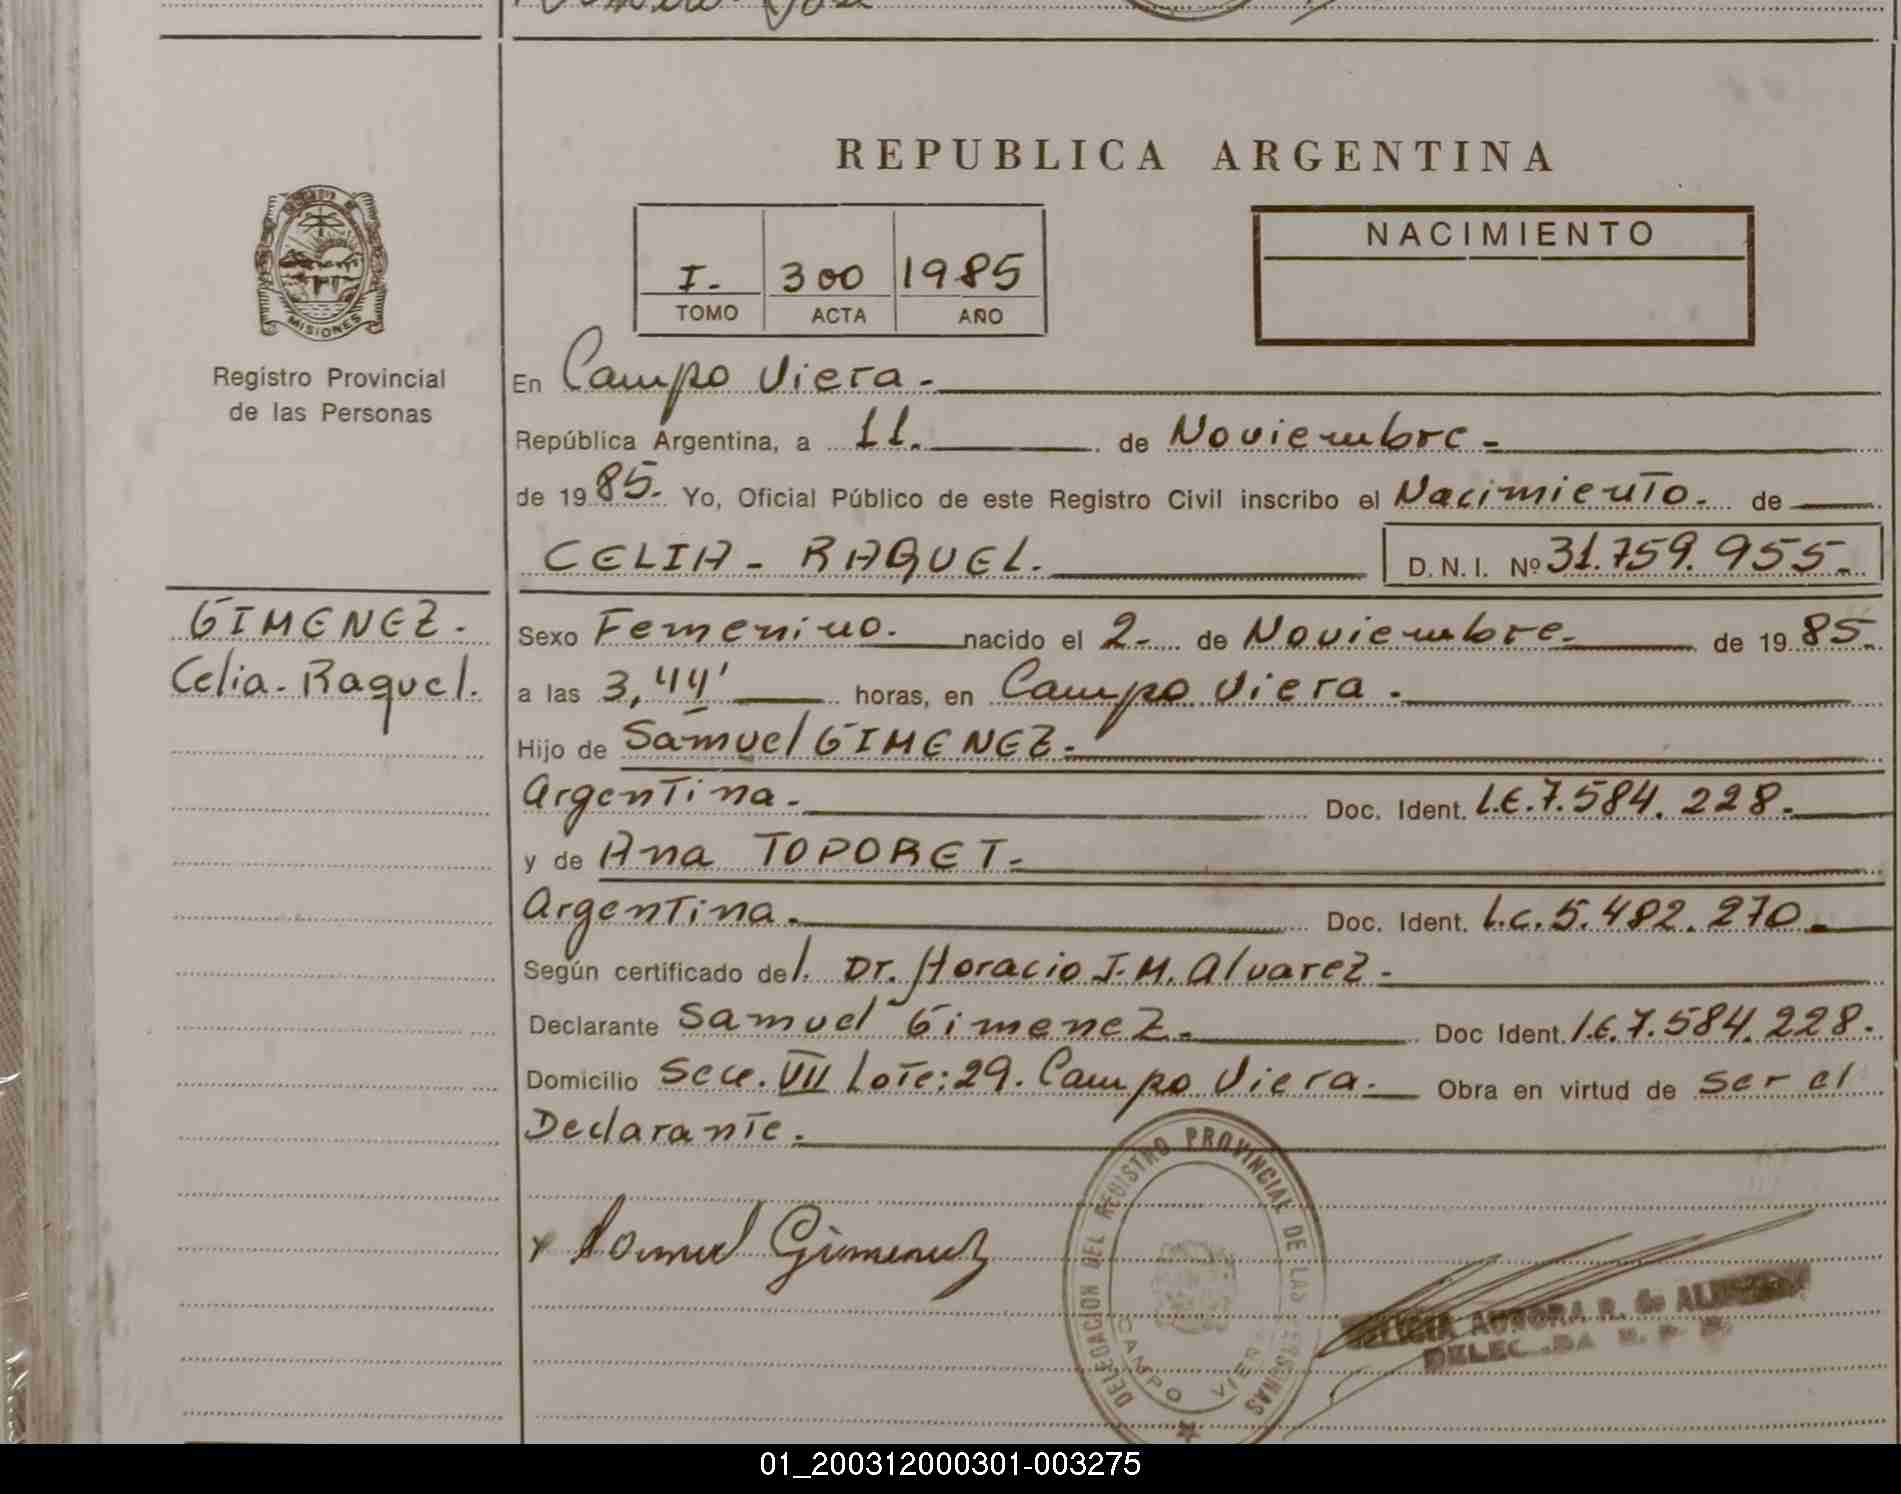 REPUBLICA ARGENTINA
MISIONES
Registro Provincial
de las Personas
I. 300 1985
TOMO ACTA AÑO
NACIMIENTO
En Campo Viera.
República Argentina, a 11. de Noviembre.
de 1985. Yo, Oficial Público de este Registro Civil inscribo el Nacimiento. de
CELIA - RAQUEL. D.N.I. Nº 31.759.955.
GIMENEZ.
Celia. Raquel.
Sexo Femenino. nacido el 2. de Noviembre. de 1985.
a las 3,44' horas, en Campo Viera.
Hijo de Samuel GIMENEZ.
Argentina. Doc. Ident. L.E. 7.584.228.
y de Ana TOPORET.
Argentina. Doc. Ident. L.C. 5.482.270.
Según certificado del. Dr. Horacio J. M. Alvarez.
Declarante Samuel Gimenez. Doc Ident. L.E. 7.584.228.
Domicilio Secc. VII Lote: 29. Campo Viera. Obra en virtud de ser el
Declarante.
Samuel Gimenez
DELEGACION DEL REGISTRO PROVINCIAL DE LAS PERSONAS
CAMPO VIERA
AURORA R. de
01_200312000301-003275